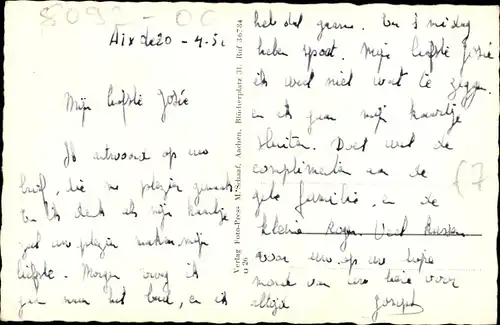 8092 - OC
Aix de 20 - 4 - 5
Mijn liefste Josée
Ik antwoord op uw
brief, die me plezier gemaakt
En ik denk als mijn kaartje
gaat uw plezier maken mijn
liefste. Morgen vroeg ik
gaan naar het bad, en ik
Verlag Foto-Preso M. Schaaf, Aachen, Blücherplatz 31, Ruf 36784
o 26
heb dat gaarne. En
heben spoot. Mijn liefste Josée
ik weet niet wat te zeggen
en ik gaan mijn kaartje
sluiten. Doet wel de
complimenten aan de
gele familie, en de
kleine Roger. Veel kussen
voor uw op uw
mond van uw voor
altijd Joseph